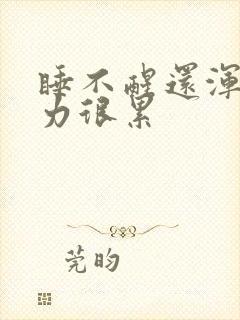 睡不醒還渾
力很累
莞昀